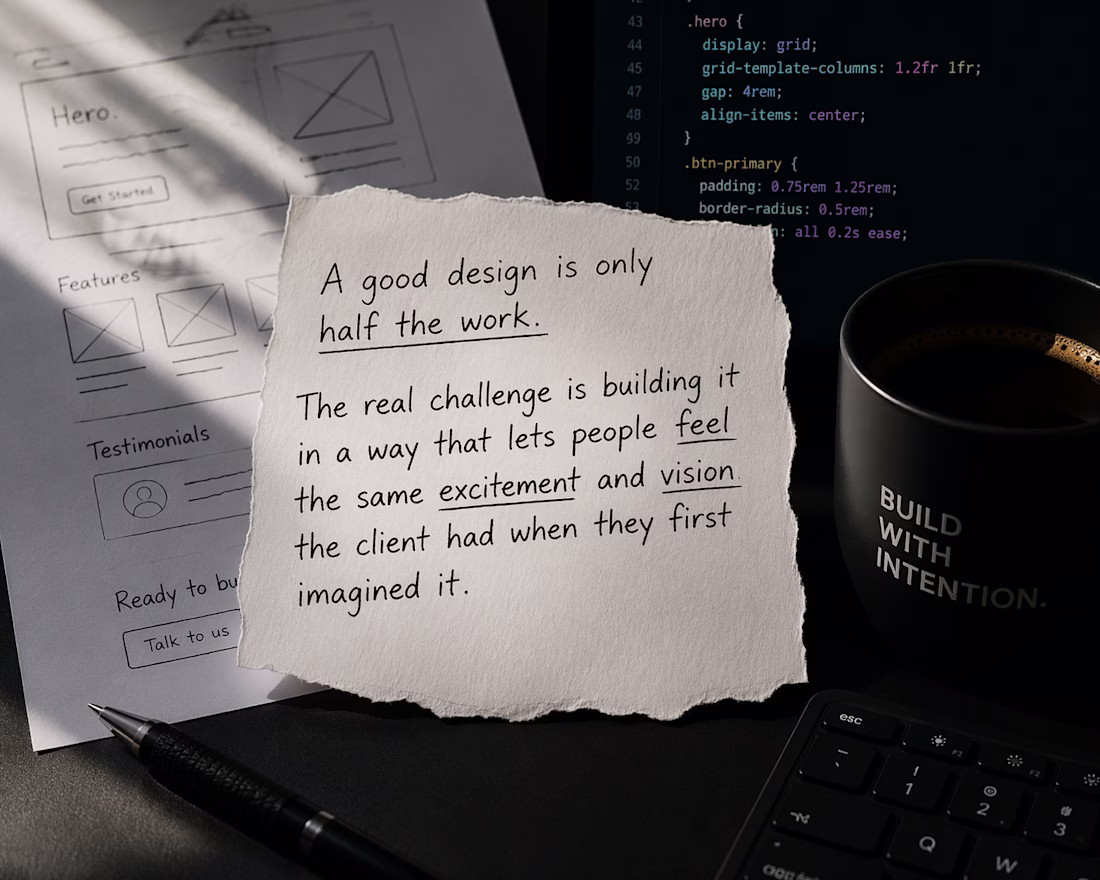 Hero.
Get Started
Features
Testimonials
Ready to bu
Talk to us
43 .hero {
44 display: grid;
45 grid-template-columns: 1.2fr 1fr;
47 gap: 4rem;
48 align-items: center;
49 }
50 .btn-primary {
52 padding: 0.75rem 1.25rem;
53 border-radius: 0.5rem;
n: all 0.2s ease;
A good design is only
half the work.
The real challenge is building it
in a way that lets people feel
the same excitement and vision
the client had when they first
imagined it.
BUILD
WITH
INTENTION.
esc
F2
F2
1
2
3
Q
W